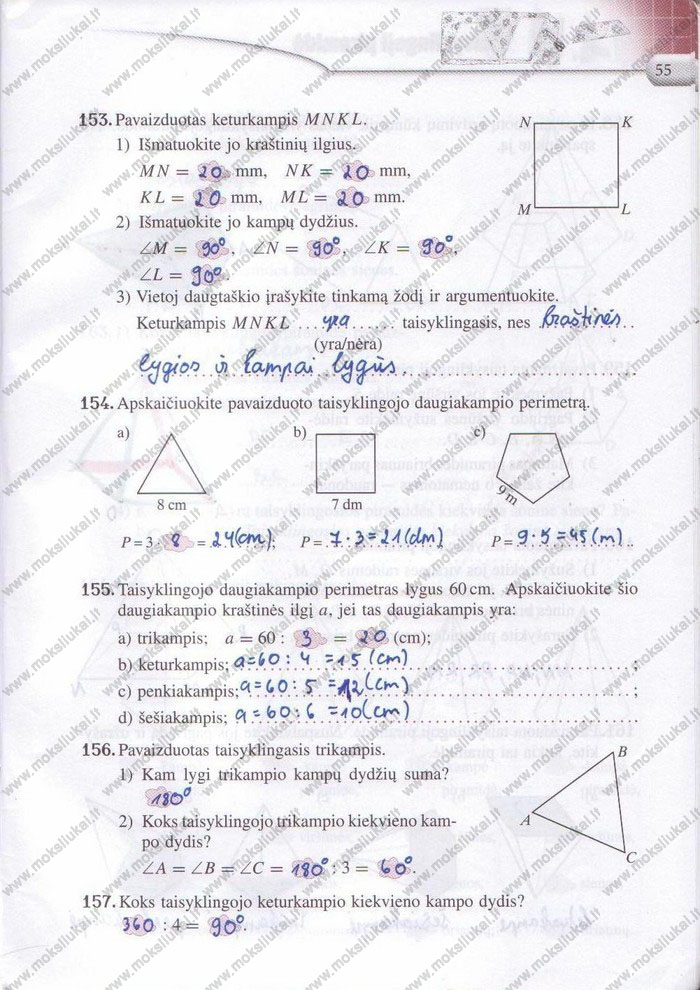 55
153. Pavaizduotas keturkampis MNKL.
1) Išmatuokite jo kraštinių ilgius.
MN = 20 mm, NK = 20 mm,
KL = 20 mm, ML = 20 mm.
N K
M L
2) Išmatuokite jo kampų dydžius.
∠M = 90°, ∠N = 90°, ∠K = 90°,
∠L = 90°.
3) Vietoj daugtaškio įrašykite tinkamą žodį ir argumentuokite.
Keturkampis MNKL ... yra ...... taisyklingasis, nes kraštinės ..
(yra/nėra)
lygios ir kampai lygūs.
154. Apskaičiuokite pavaizduoto taisyklingojo daugiakampio perimetrą.
a) b) c)
8 cm 7 dm 9 m
P = 3 · 8 = 24(cm); P = 7 · 3 = 21(dm) P = 9 · 5 = 45(m)
155. Taisyklingojo daugiakampio perimetras lygus 60 cm. Apskaičiuokite šio
daugiakampio kraštinės ilgį a, jei tas daugiakampis yra:
a) trikampis; a = 60 : 3 = 20 (cm);
b) keturkampis; a=60 : 4 = 15 (cm) ;
c) penkiakampis; a=60 : 5 = 12 (cm) ;
d) šešiakampis; a=60 : 6 = 10(cm)
156. Pavaizduotas taisyklingasis trikampis.
1) Kam lygi trikampio kampų dydžių suma?
180°
2) Koks taisyklingojo trikampio kiekvieno kam-
po dydis?
∠A = ∠B = ∠C = 180° : 3 = 60°.
B
A
C
157. Koks taisyklingojo keturkampio kiekvieno kampo dydis?
360 : 4 = 90°.
www.moksliukai.lt